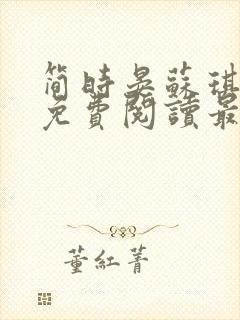 简時晏蘇琪
免費閱讀最
董紅菁